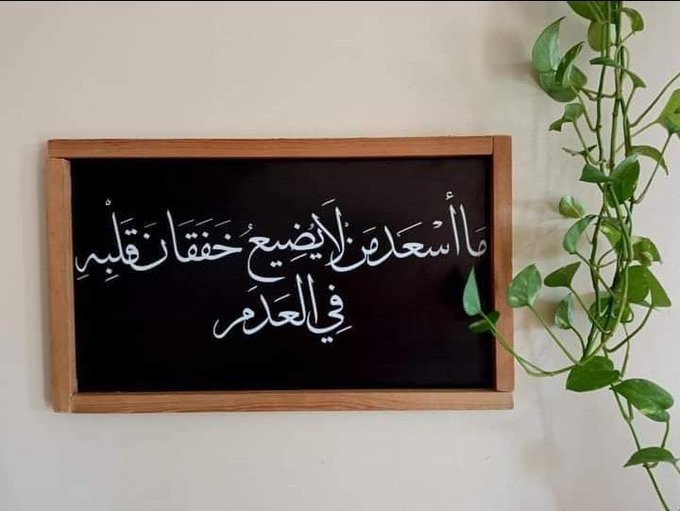 مَا أَسْعَدَ مَنْ لَا يُضِيعُ خَفَقَانَ قَلْبِهِ
فِي العَدَمِ